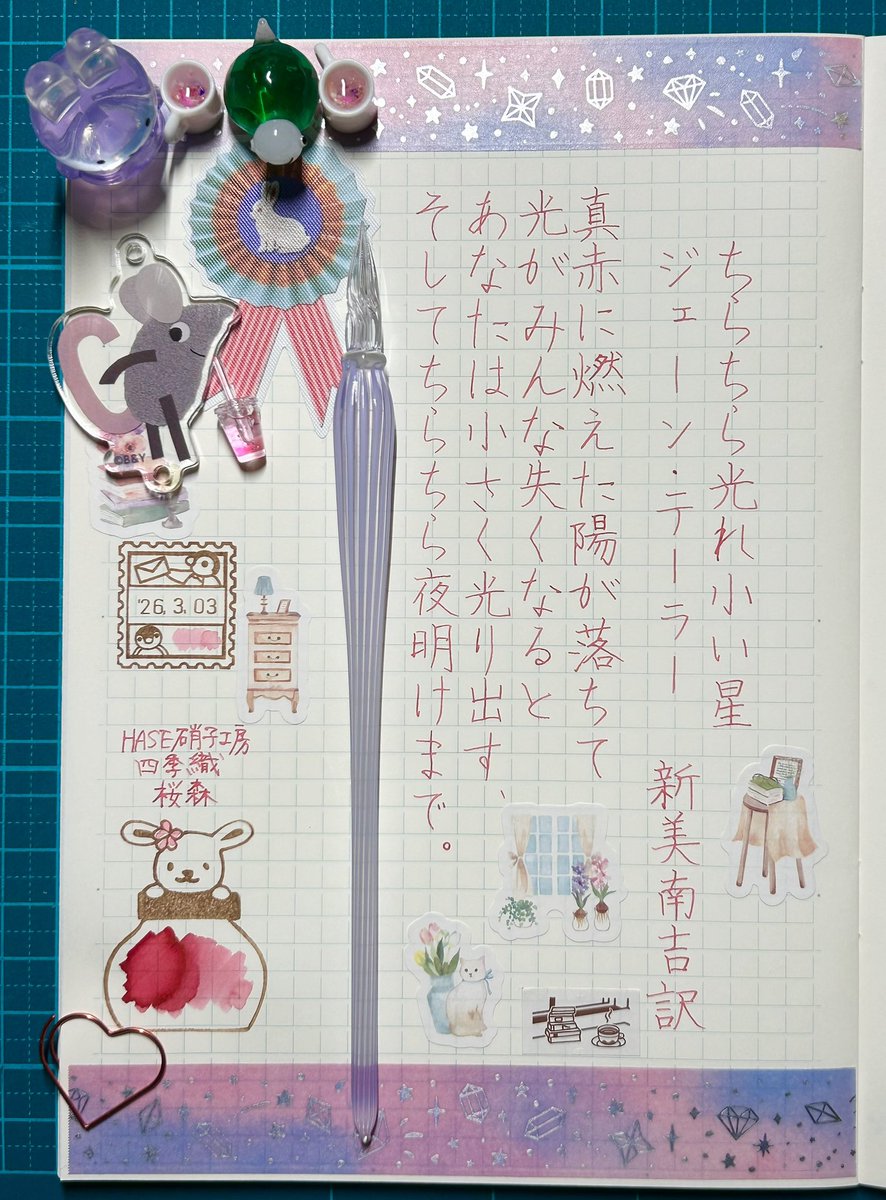 ちらちら光れ小い星
ジェーン・テーラー 新美南吉訳
真赤に燃えた陽が落ちて
光がみんな失くなると
あなたは小さく光り出す、
そしてちらちら夜明けまで。
©B&Y
'26.3.03
HASE硝子工房
四季織
桜森